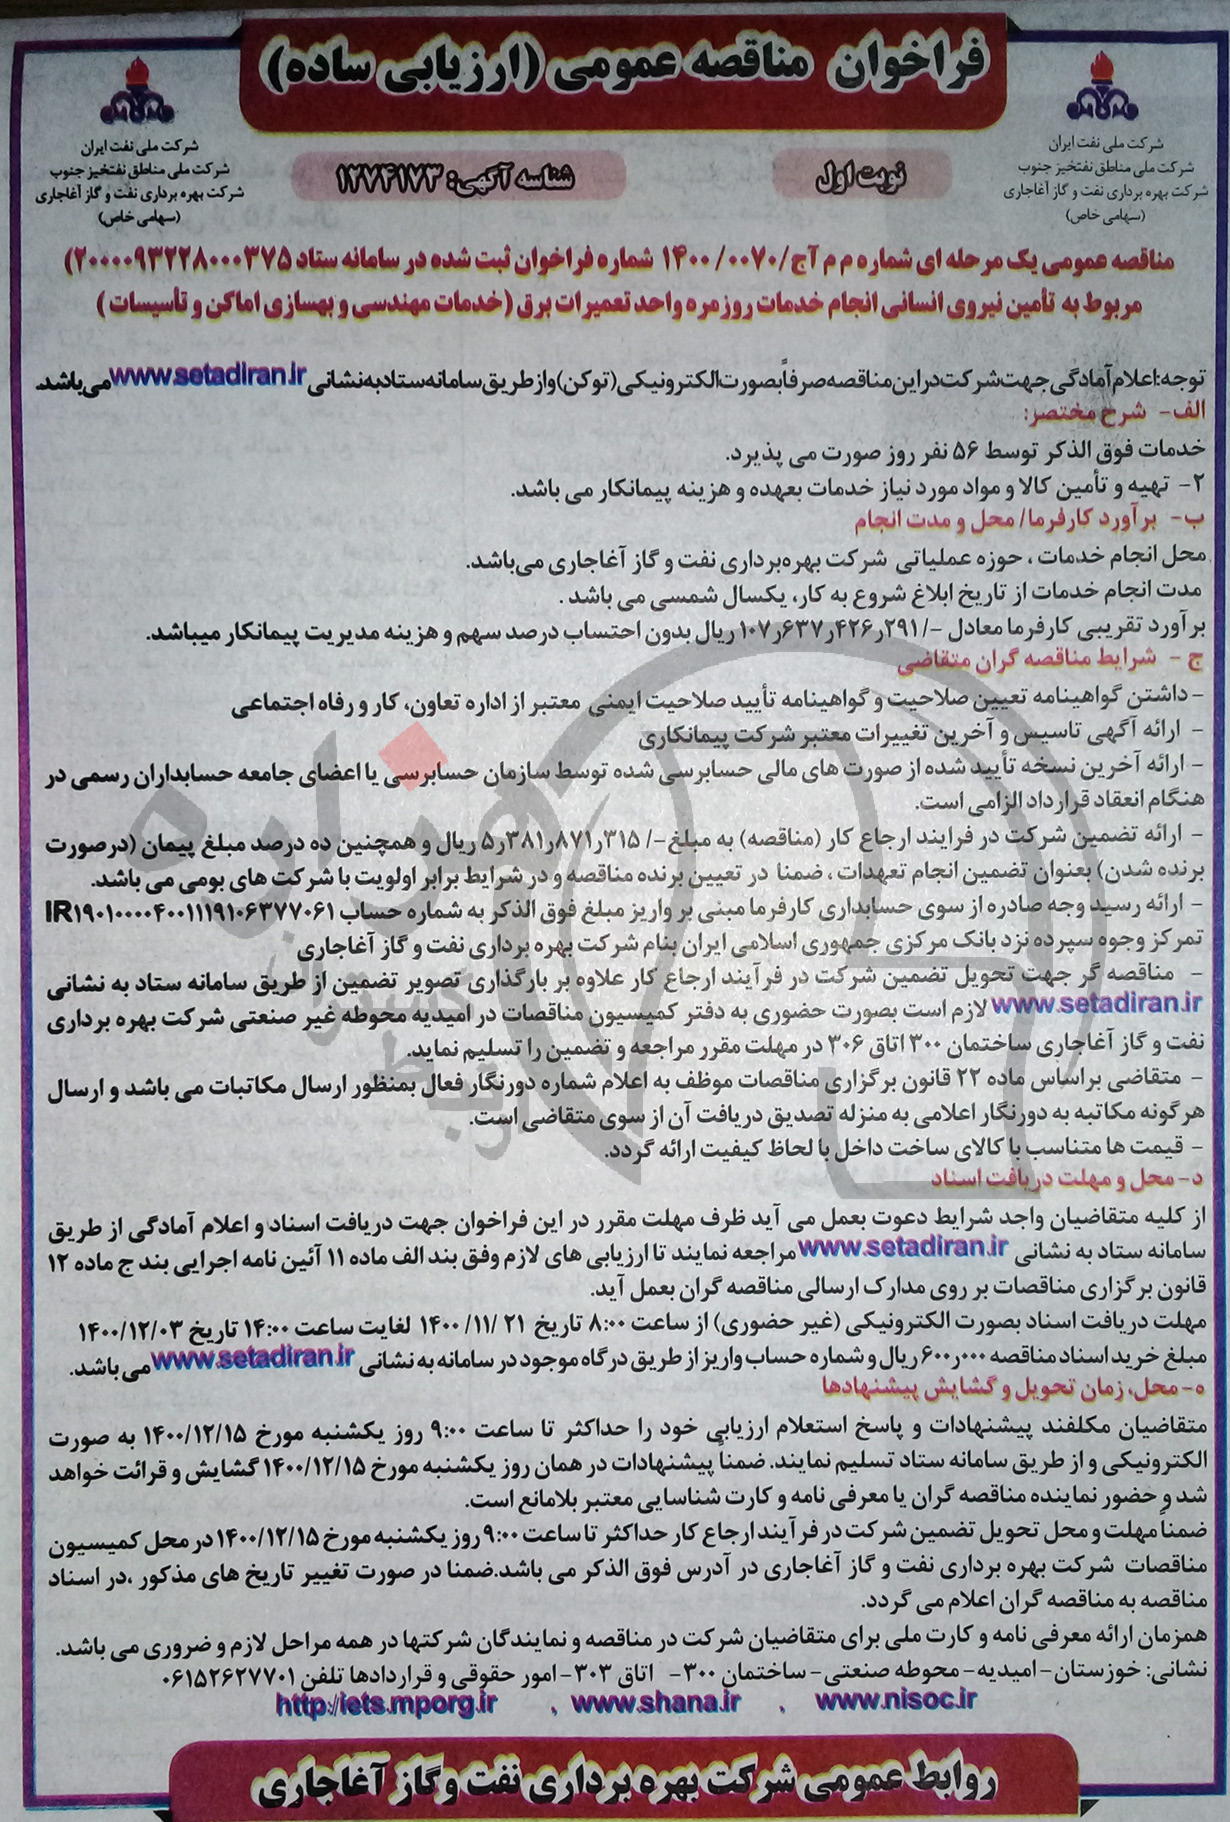 فراخوان مناقصه عمومی (ارزیابی ساده)
شرکت ملی نفت ایران
شرکت ملی مناطق نفتخیز جنوب
شرکت بهره برداری نفت و گاز آغاجاری
(سهامی خاص)
نوبت اول
شناسه آگهی: ۱۲۷۴۱۷۳
شرکت ملی نفت ایران
شرکت ملی مناطق نفتخیز جنوب
شرکت بهره برداری نفت و گاز آغاجاری
(سهامی خاص)
مناقصه عمومی یک مرحله ای شماره م م آج/۱۴۰۰/۰۰۷۰ شماره فراخوان ثبت شده در سامانه ستاد ۲۰۰۰۰۹۳۲۲۸۰۰۰۳۷۵)
مربوط به تأمین نیروی انسانی انجام خدمات روزمره واحد تعمیرات برق (خدمات مهندسی و بهسازی اماکن و تأسیسات )
توجه:اعلام آمادگی جهت شرکت در این مناقصه صرفاً بصورت الکترونیکی (توکن) و از طریق سامانه ستاد به نشانی www.setadiran.ir می باشد.
الف- شرح مختصر:
خدمات فوق الذکر توسط ۵۶ نفر روز صورت می پذیرد.
۲- تهیه و تأمین کالا و مواد مورد نیاز خدمات بعهده و هزینه پیمانکار می باشد.
ب- برآورد کارفرما/ محل و مدت انجام
محل انجام خدمات ، حوزه عملیاتی شرکت بهره‌برداری نفت و گاز آغاجاری می‌باشد.
مدت انجام خدمات از تاریخ ابلاغ شروع به کار، یکسال شمسی می باشد .
برآورد تقریبی کارفرما معادل -/۱۰۷٫۶۳۷٫۴۲۶٫۲۹۱ ریال بدون احتساب درصد سهم و هزینه مدیریت پیمانکار میباشد.
ج - شرایط مناقصه گران متقاضی
-داشتن گواهینامه تعیین صلاحیت و گواهینامه تأیید صلاحیت ایمنی معتبر از اداره تعاون، کار و رفاه اجتماعی
- ارائه آگهی تاسیس و آخرین تغییرات معتبر شرکت پیمانکاری
- ارائه آخرین نسخه تأیید شده از صورت های مالی حسابرسی شده توسط سازمان حسابرسی یا اعضای جامعه حسابداران رسمی در
هنگام انعقاد قرارداد الزامی است.
- ارائه تضمین شرکت در فرایند ارجاع کار (مناقصه) به مبلغ-/ ۵٫۳۸۱٫۸۷۱٫۳۱۵ ریال و همچنین ده درصد مبلغ پیمان (درصورت
برنده شدن) بعنوان تضمین انجام تعهدات ، ضمنا در تعیین برنده مناقصه و در شرایط برابر اولویت با شرکت های بومی می باشد.
- ارائه رسید وجه صادره از سوی حسابداری کارفرما مبنی بر واریز مبلغ فوق الذکر به شماره حساب IR۱۹۰۱۰۰۰۰۴۰۰۱۱۱۹۱۰۶۳۷۷۰۶۱
تمرکز وجوه سپرده نزد بانک مرکزی جمهوری اسلامی ایران بنام شرکت بهره برداری نفت و گاز آغاجاری
- مناقصه گر جهت تحویل تضمین شرکت در فرآیند ارجاع کار علاوه بر بارگذاری تصویر تضمین از طریق سامانه ستاد به نشانی
www.setadiran.ir لازم است بصورت حضوری به دفتر کمیسیون مناقصات در امیدیه محوطه غیر صنعتی شرکت بهره برداری
نفت و گاز آغاجاری ساختمان ۳۰۰ اتاق ۳۰۶ در مهلت مقرر مراجعه و تضمین را تسلیم نماید.
- متقاضی براساس ماده ۲۲ قانون برگزاری مناقصات موظف به اعلام شماره دورنگار فعال بمنظور ارسال مکاتبات می باشد و ارسال
هرگونه مکاتبه به دورنگار اعلامی به منزله تصدیق دریافت آن از سوی متقاضی است.
- قیمت ها متناسب با کالای ساخت داخل با لحاظ کیفیت ارائه گردد.
د- محل و مهلت دریافت اسناد
از کلیه متقاضیان واجد شرایط دعوت بعمل می آید ظرف مهلت مقرر در این فراخوان جهت دریافت اسناد و اعلام آمادگی از طریق
سامانه ستاد به نشانی www.setadiran.ir مراجعه نمایند تا ارزیابی های لازم وفق بند الف ماده ۱۱ آئین نامه اجرایی بند ج ماده ۱۲
قانون برگزاری مناقصات بر روی مدارک ارسالی مناقصه گران بعمل آید.
مهلت دریافت اسناد بصورت الکترونیکی (غیر حضوری) از ساعت ۸:۰۰ تاریخ ۲۱ /۱۱/ ۱۴۰۰ لغایت ساعت ۱۴:۰۰ تاریخ ۱۴۰۰/۱۲/۰۳
مبلغ خرید اسناد مناقصه ۶۰۰٫۰۰۰ ریال و شماره حساب واریز از طریق درگاه موجود در سامانه به نشانی www.setadiran.ir می باشد.
ه- محل، زمان تحویل و گشایش پیشنهادها
متقاضیان مکلفند پیشنهادات و پاسخ استعلام ارزیابی خود را حداکثر تا ساعت ۹:۰۰ روز یکشنبه مورخ ۱۴۰۰/۱۲/۱۵ به صورت
الکترونیکی و از طریق سامانه ستاد تسلیم نمایند. ضمناً پیشنهادات در همان روز یکشنبه مورخ ۱۴۰۰/۱۲/۱۵ گشایش و قرائت خواهد
شد و حضور نماینده مناقصه گران با معرفی نامه و کارت شناسایی معتبر بلامانع است.
ضمناً مهلت و محل تحویل تضمین شرکت در فرآیند ارجاع کار حداکثر تا ساعت ۹:۰۰ روز یکشنبه مورخ ۱۴۰۰/۱۲/۱۵ در محل کمیسیون
مناقصات شرکت بهره برداری نفت و گاز آغاجاری در آدرس فوق الذکر می باشد.ضمنا در صورت تغییر تاریخ های مذکور ،در اسناد
مناقصه به مناقصه گران اعلام می گردد.
همزمان ارائه معرفی نامه و کارت ملی برای متقاضیان شرکت در مناقصه و نمایندگان شرکتها در همه مراحل لازم و ضروری می باشد.
نشانی: خوزستان- امیدیه- محوطه صنعتی- ساختمان ۳۰۰- اتاق ۳۰۳- امور حقوقی و قراردادها تلفن ۰۶۱۵۲۶۲۷۷۰۱
www.nisoc.ir , www.shana.ir , http:/iets.mporg.ir
روابط عمومی شرکت بهره برداری نفت و گاز آغاجاری